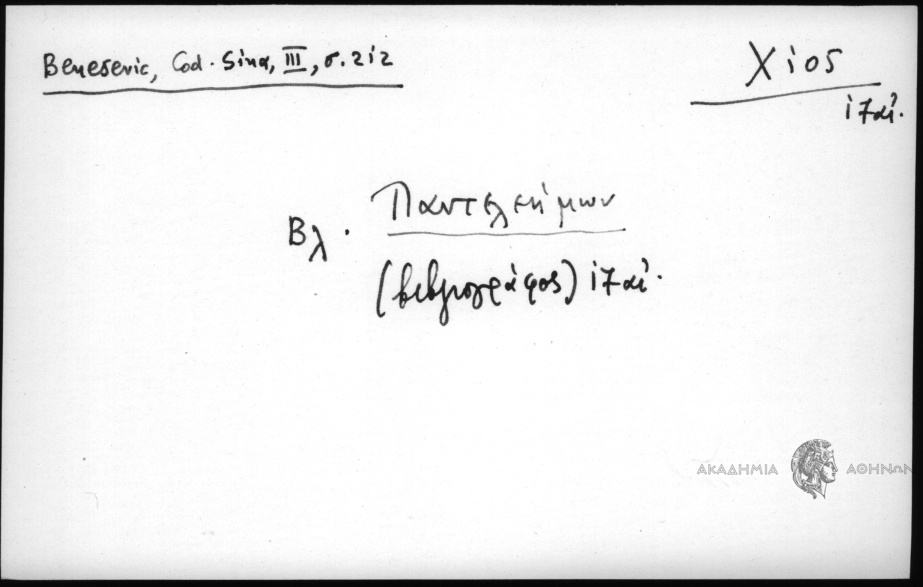 Benesevic, Cod. Sina, III, σ. 212
Χίος
17αι.
Βλ. Παντελεήμων
(βιβλιογράφος) 17αι.
ΑΚΑΔΗΜΙΑ ΑΘΗΝΩΝ